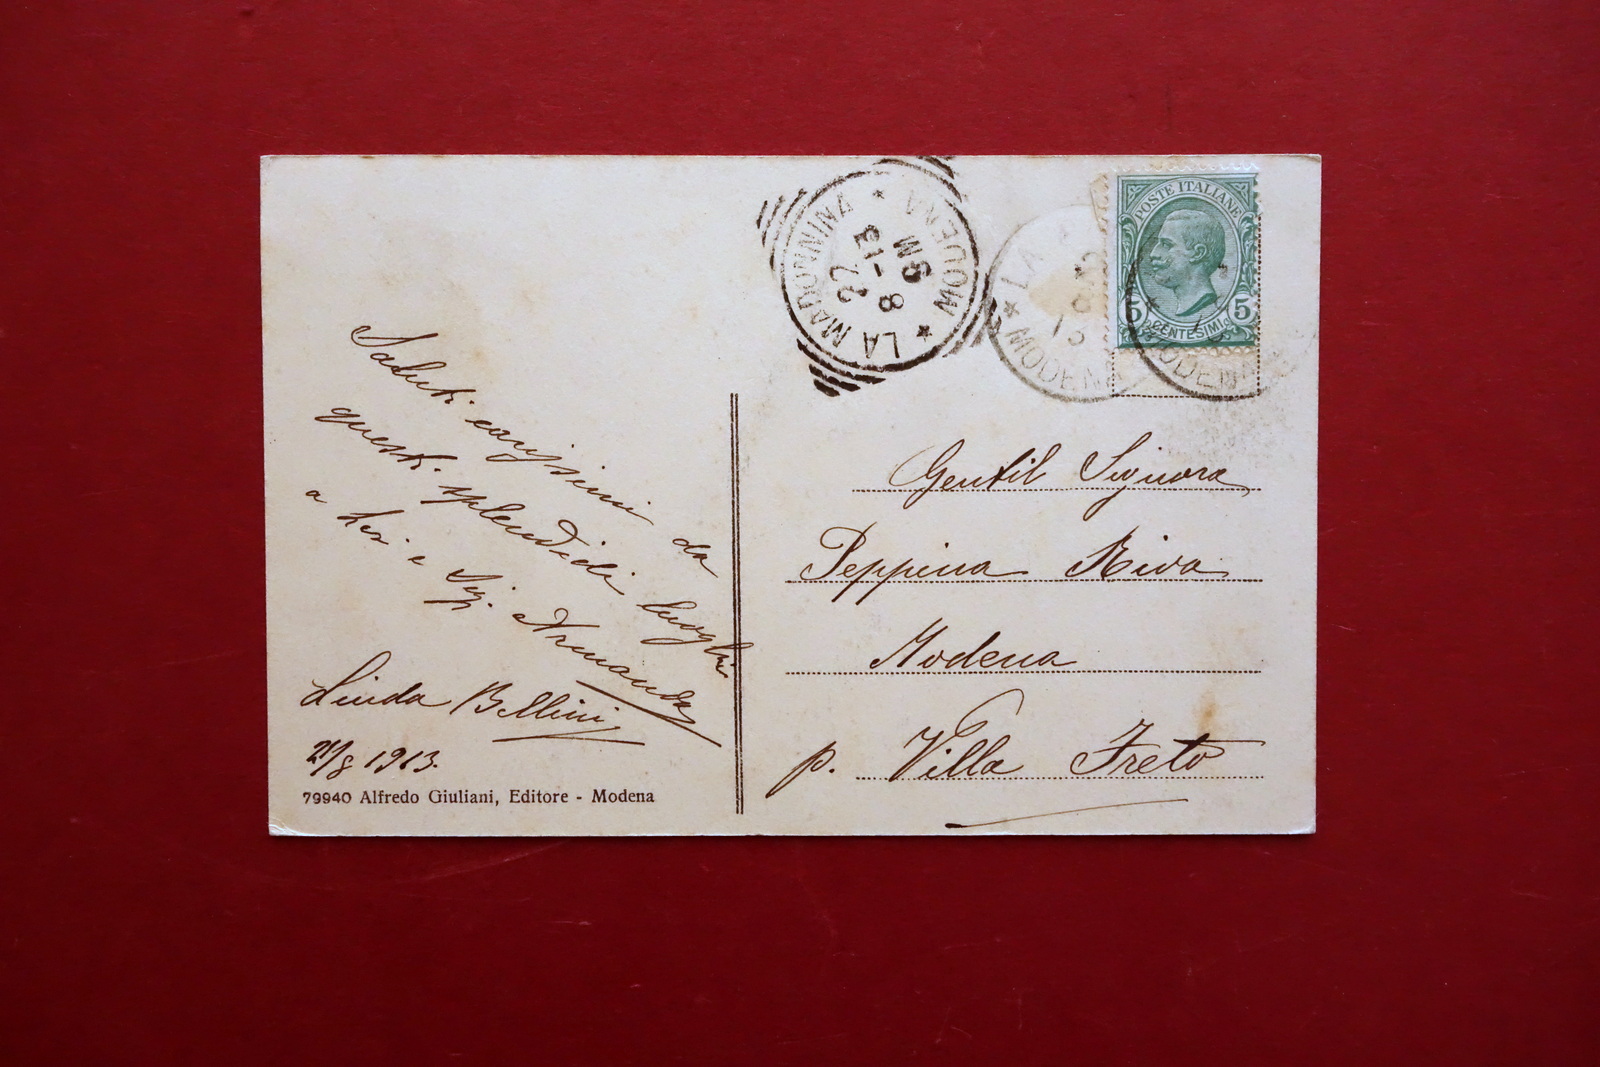 Saluti carissimi da
questi splendidi luoghi
a Lei e Sig. Armanda
Linda Bellini
21/8 1913.
79940 Alfredo Giuliani, Editore - Modena
LA MADONNINA * MODENA *
22
8-13
6M
LA
13
* MODENA
POSTE ITALIANE
5 CENTESIMI 5
* MODENA
Gentil Signora
Peppina Riva
Modena
p. Villa Freto